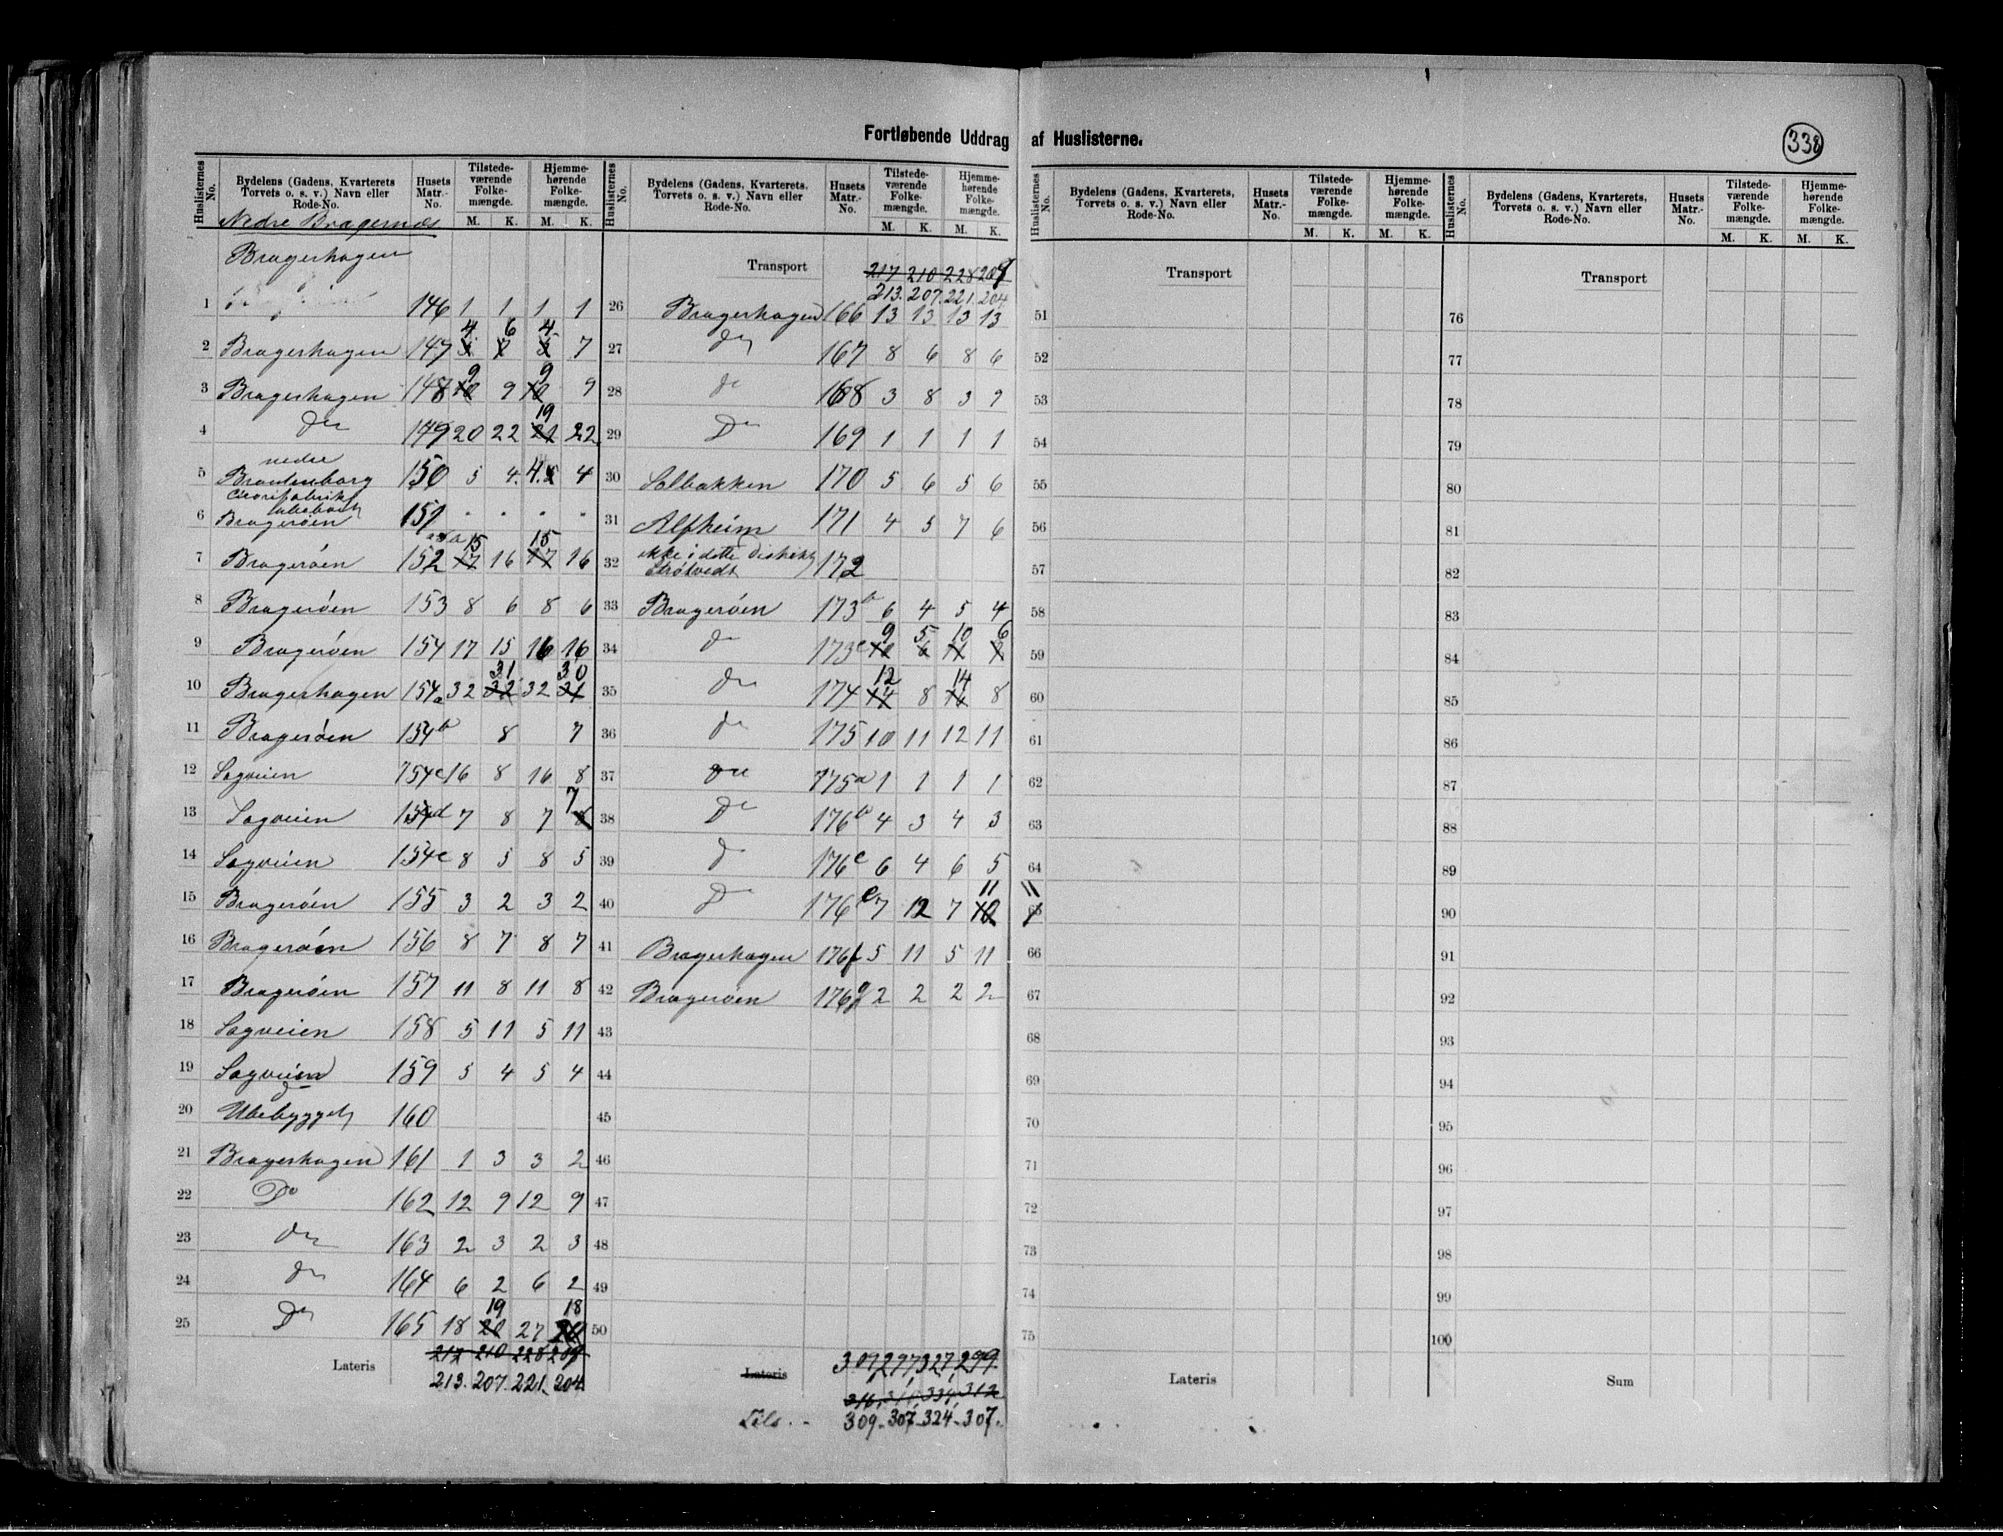 338
Fortløbende Uddrag af Huslisterne.
Huslisternes No. | Bydelens (Gadens, Kvarterets, Torvets o. s. v.) Navn eller Rode-No. | Husets Matr.-No. | Tilstede-værende Folke-mængde. M. K. | Hjemme-hørende Folke-mængde. M. K.
Nedre Bragernæs
Bragerhagen
1 146 1 1 1 1
2 Bragerhagen 147 4 6 4 7
3 Bragerhagen 148 9 9 9 9
4 Do 149 20 22 19 22
5 nedre Brantenborg 150 5 4. 4. 4
6 Bragerøen 151 " " " "
7 Bragerøen 152 15 16 15 16
8 Bragerøen 153 8 6 8 6
9 Bragerøen 154 17 15 16 16
10 Bragerhagen 154a 32 31 32 30
11 Bragerøen 154b 8 7
12 Sagveien 154c 16 8 16 8
13 Sagveien 154d 7 8 7 7
14 Sagveien 154e 8 5 8 5
15 Bragerøen 155 3 2 3 2
16 Bragerøen 156 8 7 8 7
17 Bragerøen 157 11 8 11 8
18 Sagveien 158 5 11 5 11
19 Sagveien 159 5 4 5 4
20 Do Ubebygget 160
21 Bragerhagen 161 1 3 3 2
22 Do 162 12 9 12 9
23 Do 163 2 3 2 3
24 Do 164 6 2 6 2
25 Do 165 18 19 27 18
Lateris 217 210 228 209
213. 207. 221. 204
Huslisternes No. | Bydelens (Gadens, Kvarterets, Torvets o. s. v.) Navn eller Rode-No. | Husets Matr.-No. | Tilstede-værende Folke-mængde. M. K. | Hjemme-hørende Folke-mængde. M. K.
Transport 217 210 228 209
213. 207. 221. 204.
26 Bragerhagen 166 13 13 13 13
27 Do 167 8 6 8 6
28 Do 168 3 8 3 9
29 Do 169 1 1 1 1
30 Solbakken 170 5 6 5 6
31 Alfheim 171 4 5 7 6
32 ikke i dette Distrikt Strøtvedt 172
33 Bragerøen 173b 6 4 5 4
34 Do 173c 9 5 10 6
35 Do 174 12 8 14 8
36 Do 175 10 11 12 11
37 Do 175a 1 1 1 1
38 Do 176b 4 3 4 3
39 Do 176c 6 4 6 5
40 Do 176e 7 12 7 11 11
41 Bragerhagen 176f 5 11 5 11
42 Bragerøen 176g 2 2 2 2
43
44
45
46
47
48
49
50
Lateris 309, 297, 327, 299
316, 310, 334, 312
Tils. . . 309. 307. 324. 307.
Huslisternes No. | Bydelens (Gadens, Kvarterets, Torvets o. s. v.) Navn eller Rode-No. | Husets Matr.-No. | Tilstede-værende Folke-mængde. M. K. | Hjemme-hørende Folke-mængde. M. K.
Transport
51
52
53
54
55
56
57
58
59
60
61
62
63
64
65
66
67
68
69
70
71
72
73
74
75
Lateris
Huslisternes No. | Bydelens (Gadens, Kvarterets, Torvets o. s. v.) Navn eller Rode-No. | Husets Matr.-No. | Tilstede-værende Folke-mængde. M. K. | Hjemme-hørende Folke-mængde. M. K.
Transport
76
77
78
79
80
81
82
83
84
85
86
87
88
89
90
91
92
93
94
95
96
97
98
99
100
Sum